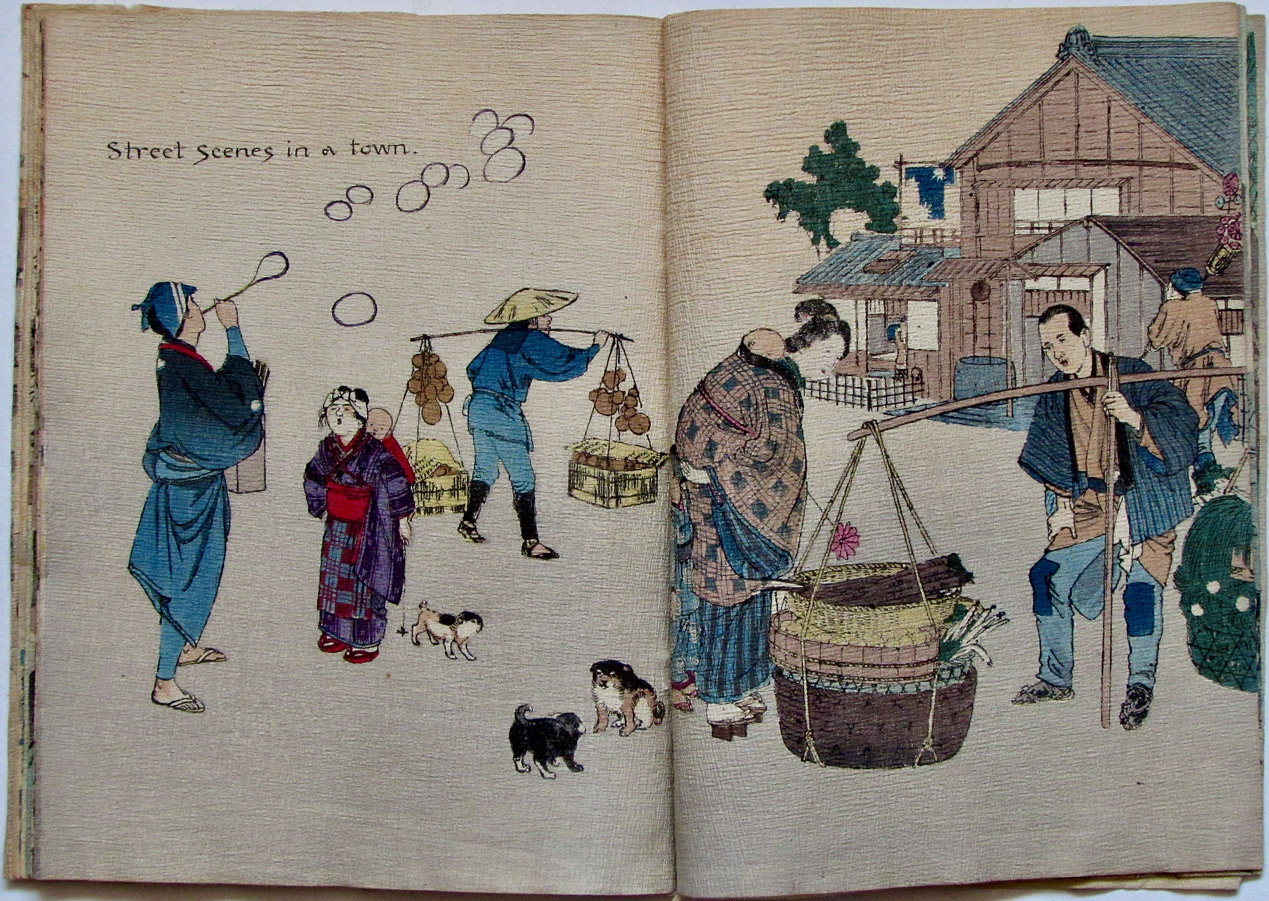 Street Scenes in a town.